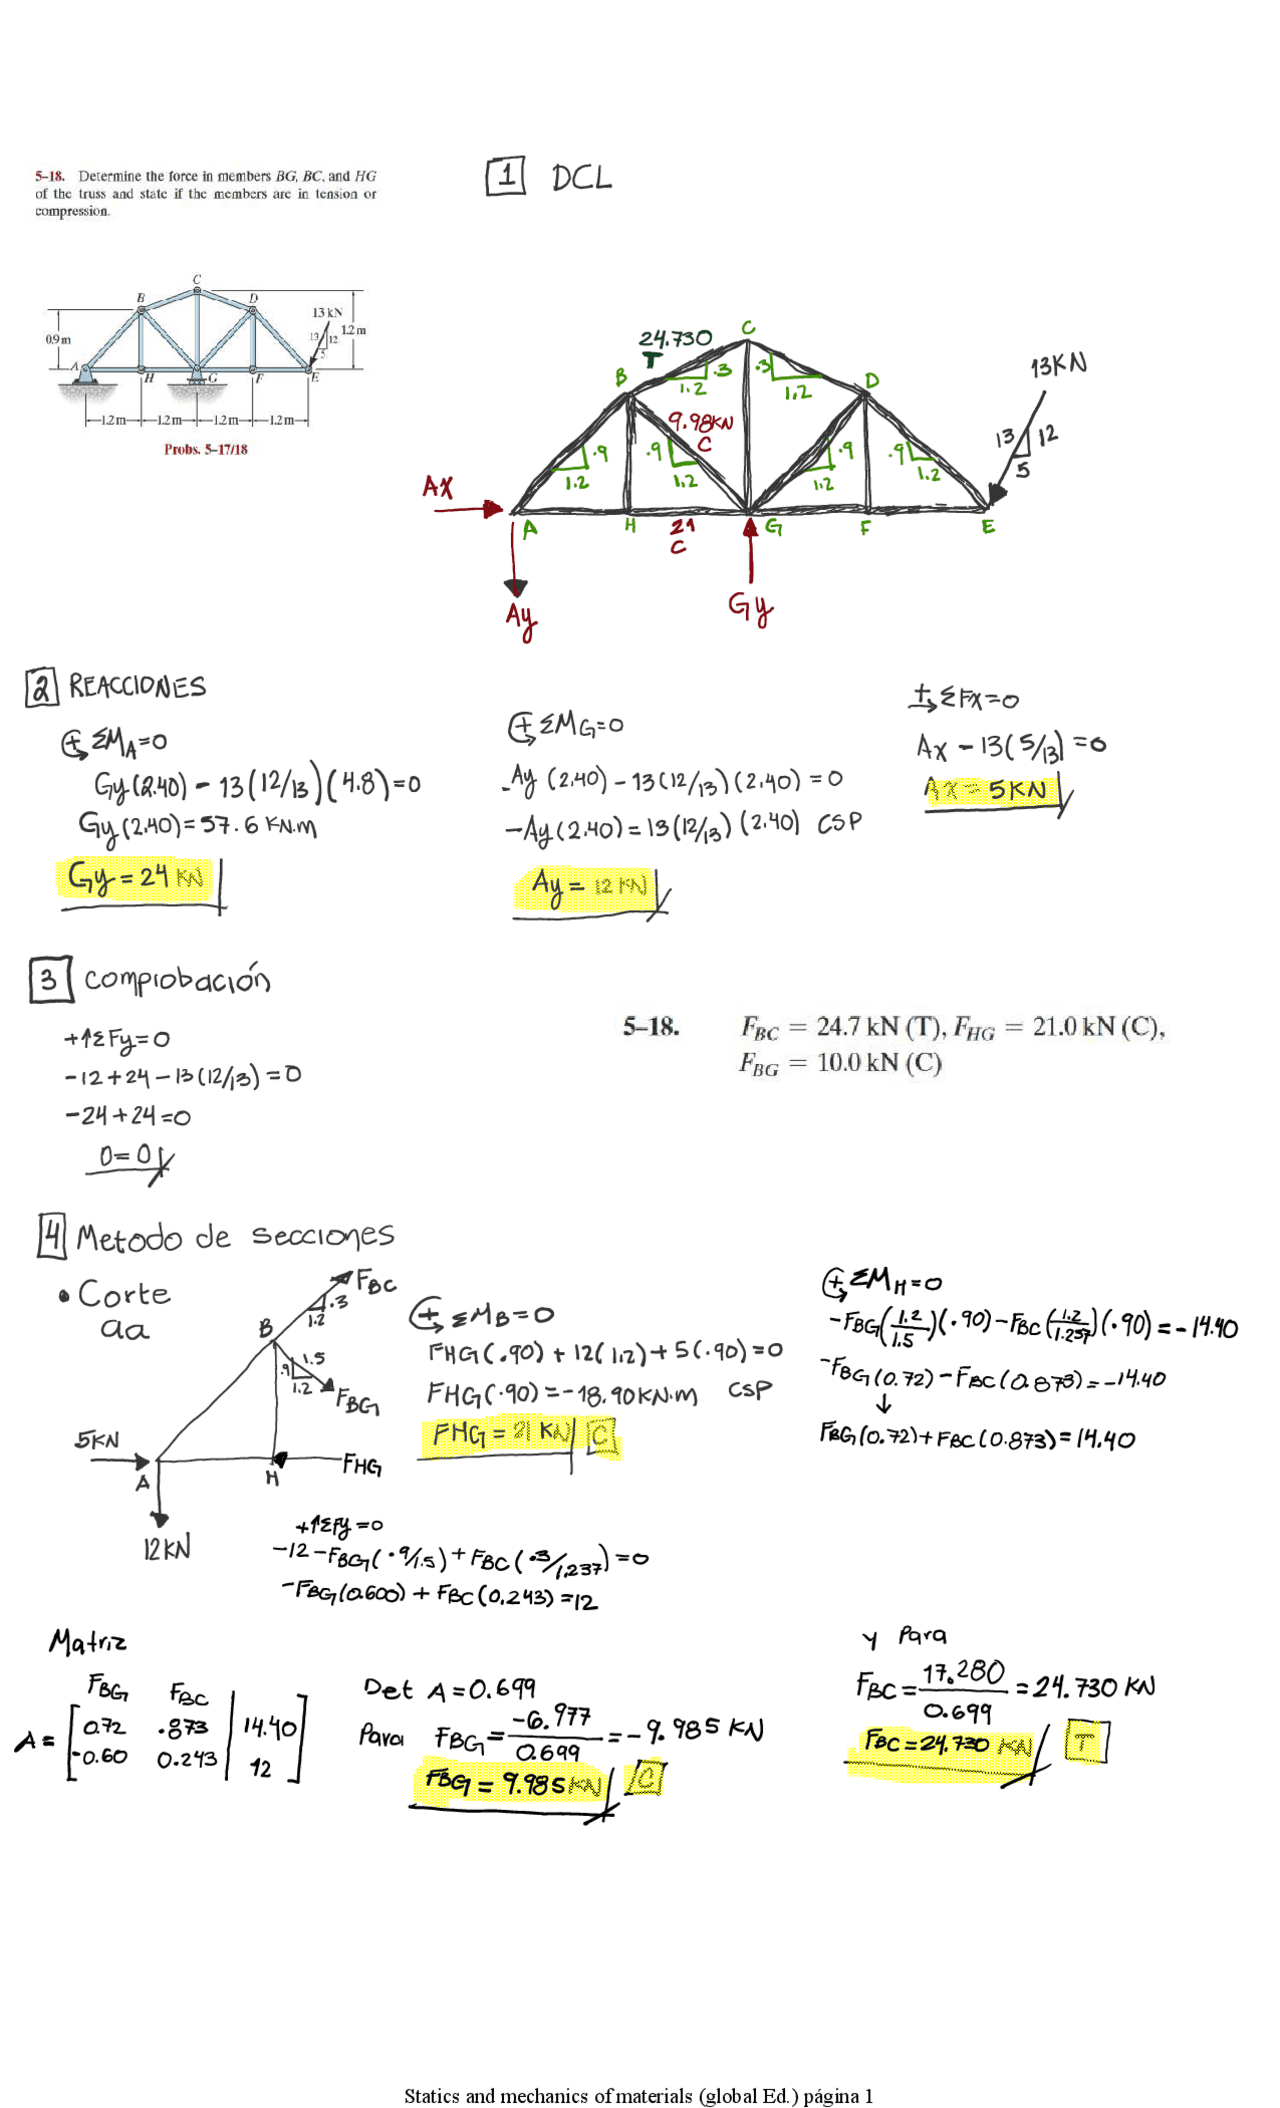 5–18. Determine the force in members BG, BC, and HG
of the truss and state if the members are in tension or
compression.
1 DCL
C
B
D
13 kN
0.9 m
13
12
5
1.2 m
A
H
G
F
E
1.2 m 1.2 m 1.2 m 1.2 m
Probs. 5–17/18
24.730
T
C
B
.3
1.2
.3
1.2
D
13KN
9.98KN
C
13
12
5
.9
1.2
.9
1.2
.9
1.2
.9
1.2
AX
A
H
21
C
G
F
E
Ay
Gy
2 REACCIONES
+ ΣMA=0
Gy(2.40) - 13(12/13)(4.8)=0
Gy(2.40)=57.6 KN.m
Gy = 24 KN
+ ΣMG=0
-Ay (2.40) - 13(12/13)(2.40) = 0
-Ay(2.40)=13(12/13)(2.40) CSP
Ay = 12 KN
+ ΣFX=0
Ax - 13(5/13) =0
AX = 5KN
3 comprobación
+↑ΣFy=0
-12+24-13(12/13)=0
-24+24=0
0=0
5–18. FBC = 24.7 kN (T), FHG = 21.0 kN (C),
FBG = 10.0 kN (C)
4 Metodo de secciones
• Corte
aa
FBC
.3
1.2
B
1.5
.9
1.2
FBG
5KN
A
H
FHG
12KN
+ ΣMB=0
FHG(.90) + 12(1.2)+5(.90)=0
FHG(.90)=-18.90KN.m CSP
FHG = 21 KN C
+ ΣMH=0
-FBG(1.2/1.5)(.90)-FBC(1.2/1.237)(.90)=-14.40
-FBG(0.72)-FBC(0.873)=-14.40
↓
FBG(0.72)+FBC(0.873)=14.40
+↑ΣFy=0
-12-FBG(.9/1.5)+FBC(.3/1.237)=0
-FBG(0.600)+FBC(0.243)=12
Matriz
FBG FBC
A= 0.72 .873 14.40
-0.60 0.243 12
Det A=0.699
Para FBG = -6.977/0.699 = -9.985 KN
FBG = 9.985 KN C
y Para
FBC = 17.280/0.699 = 24.730 KN
FBC=24.730 KN T
Statics and mechanics of materials (global Ed.) página 1